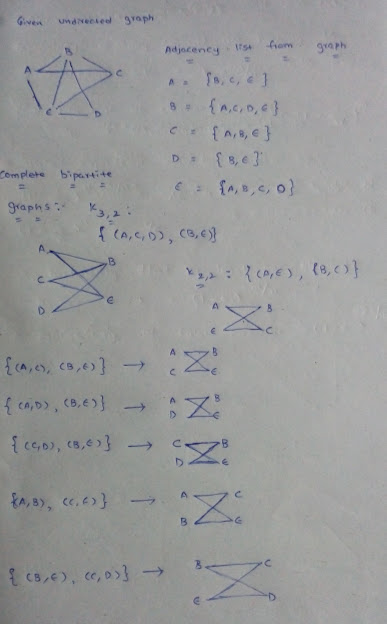 Given undirected graph
B
A
C
E
D
Adjacency list from graph
A = {B, C, E}
B = {A,C,D,E}
C = {A,B,E}
D = {B,E}
E = {A,B,C,D}
Complete bipartite
graphs:- K3,2 :
{(A,C,D), (B,E)}
A
B
C
D
E
K2,2 : {(A,E), (B,C)}
A B
E C
{(A,C), (B,E)} → A B
C E
{(A,D), (B,E)} → A B
D E
{(C,D), (B,E)} → C B
D E
{(A,B), (C,E)} → A C
B E
{(B,E), (C,D)} → B C
E D